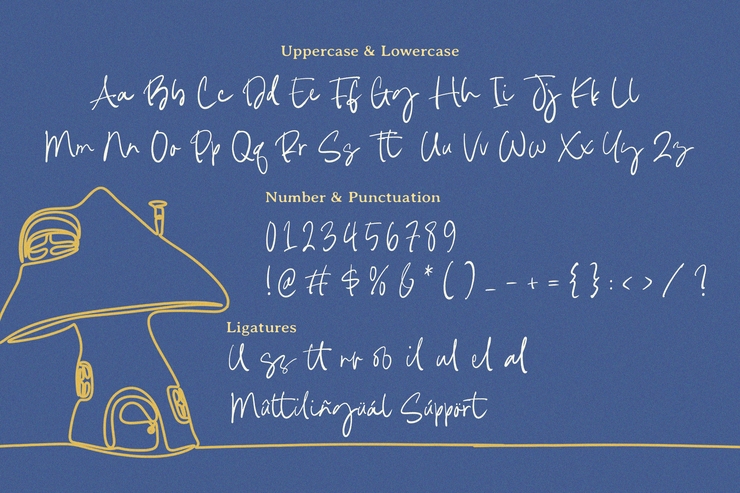 Uppercase & Lowercase
Aa Bb Cc Dd Ee Ff Gg Hh Ii Jj Kk Ll
Mm Nn Oo Pp Qq Rr Ss Tt Uu Vv Ww Xx Yy Zz
Number & Punctuation
0123456789
!@#$%&*()_-+={}:<>/?
Ligatures
ll ss tt rr oo il ul el al
Mûltiliñgüál Súppört